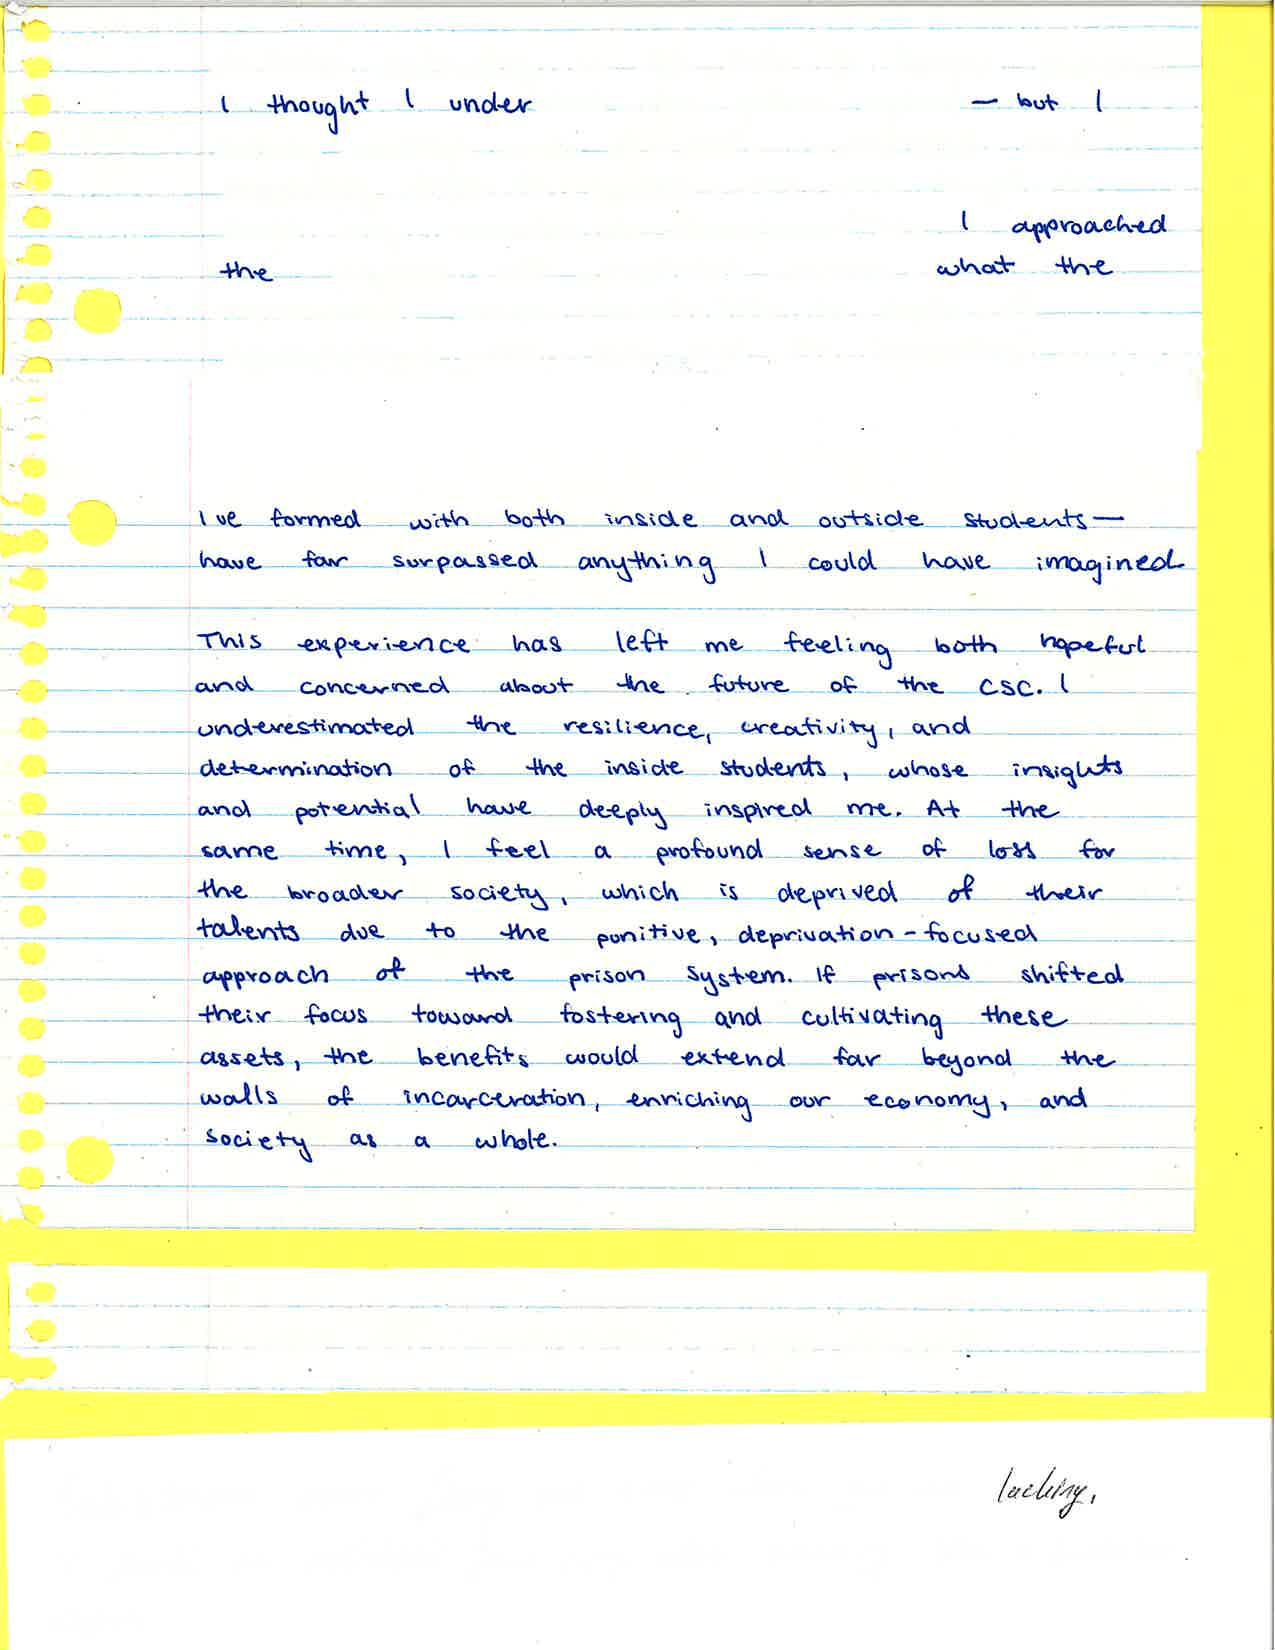 I thought I under — but I
I approached
the what the
I've formed with both inside and outside students—
have far surpassed anything I could have imagined
This experience has left me feeling both hopeful
and concerned about the future of the CSC. I
underestimated the resilience, creativity, and
determination of the inside students, whose insights
and potential have deeply inspired me. At the
same time, I feel a profound sense of loss for
the broader society, which is deprived of their
talents due to the punitive, deprivation-focused
approach of the prison system. If prisons shifted
their focus toward fostering and cultivating these
assets, the benefits would extend far beyond the
walls of incarceration, enriching our economy, and
society as a whole.
lacking.